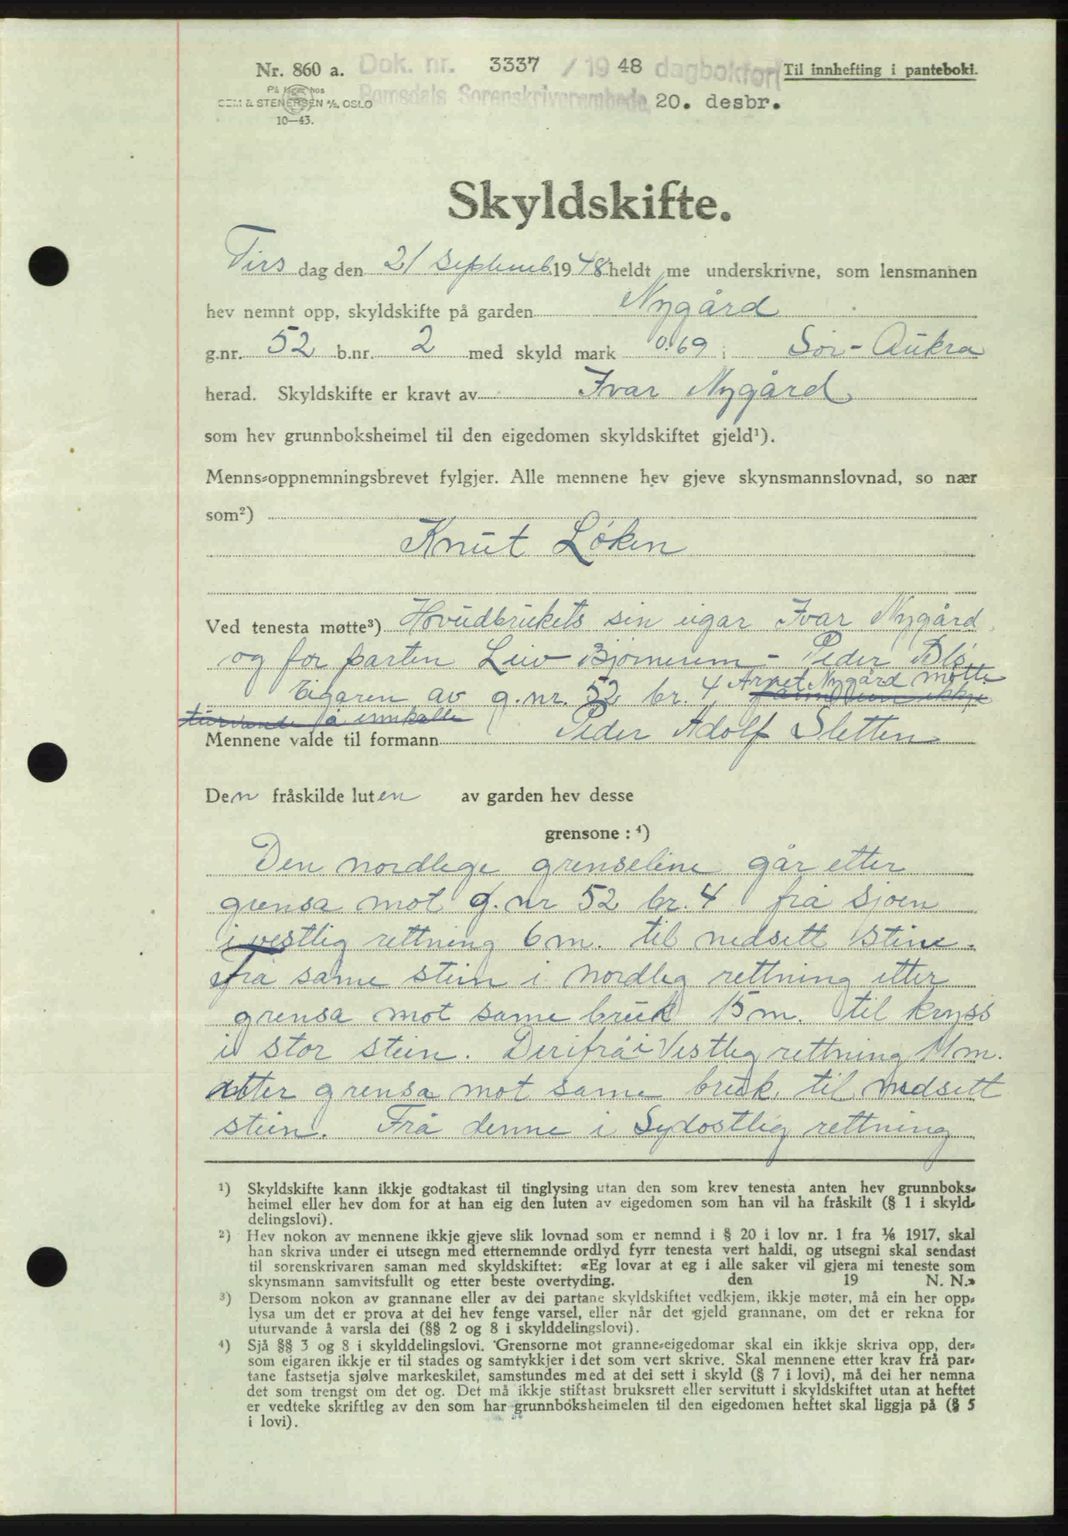 Nr. 860 a. Dok. nr. 3337 / 19 48 dagbokført Til innhefting i pantebok.
På lager hos
SEM & STENERSEN A/S, OSLO Romsdals Sorenskriverembede 20. desbr.
10—43.
Skyldskifte.
Tirs dag den 21 September 1948 heldt me underskrivne, som lensmannen
hev nemnt opp, skyldskifte på garden Nygård
g.nr. 52 b.nr. 2 med skyld mark 0.69 i Sør-Aukra
herad. Skyldskifte er kravt av Ivar Nygård
som hev grunnboksheimel til den eigedomen skyldskiftet gjeld¹).
Menns-oppnemningsbrevet fylgjer. Alle mennene hev gjeve skynsmannslovnad, so nær
som²)
Knut Løken
Ved tenesta møtte³) Hovudbrukets sin eigar Ivar Nygård
og for parten Leiv Bjørnerem - Peder Blø
Eigaren av g.nr. 52 br. 4 Arnet Nygård møtte
turvande å innkalle
Mennene valde til formann Peder Adolf Sletten
Den fråskilde luten av garden hev desse
grensone : ⁴)
Den nordlege grenseline går etter
grensa mot g. nr 52 br. 4 frå sjøen
i vestlig rettning 6 m. til nedsett stein.
Fra same stein i nordleg rettning etter
grensa mot same bruk 15 m. til kryss
i stor stein. Derifrå i Vestleg rettning 11 m.
etter grensa mot same bruk, til nedsett
stein. Frå denne i Sydostlig rettning
¹) Skyldskifte kann ikkje godtakast til tinglysing utan den som krev tenesta anten hev grunnboks-
heimel eller hev dom for at han eig den luten av eigedomen som han vil ha fråskilt (§ 1 i skyld-
delingslovi).
²) Hev nokon av mennene ikkje gjeve slik lovnad som er nemnd i § 20 i lov nr. 1 fra 1/6 1917, skal
han skriva under ei utsegn med etternemnde ordlyd fyrr tenesta vert haldi, og utsegni skal sendast
til sorenskrivaren saman med skyldskiftet: «Eg lovar at eg i alle saker vil gjera mi teneste som
skynsmann samvitsfullt og etter beste overtyding. den 19 N. N.»
³) Dersom nokon av grannane eller av dei partane skyldskiftet vedkjem, ikkje møter, må ein her opp-
lysa um det er prova at dei hev fenge varsel, eller når det gjeld grannane, om det er rekna for
uturvande å varsla dei (§§ 2 og 8 i skylddelingslovi).
⁴) Sjå §§ 3 og 8 i skylddelingslovi. Grensorne mot granne-eigedomar skal ein ikkje skriva opp, der-
som eigaren ikkje er til stades og samtykkjer i det som vert skrive. Skal mennene etter krav frå par-
tane fastsetja sjølve markeskilet, samstundes med at dei sett i skyld (§ 7 i lovi), må dei her nemna
det som trengst om det og. Det må ikkje stiftast bruksrett eller servitutt i skyldskiftet utan at heftet
er vedteke skriftleg av den som har grunnboksheimelen til den eigedomen heftet skal liggja på (§ 5
i lovi).